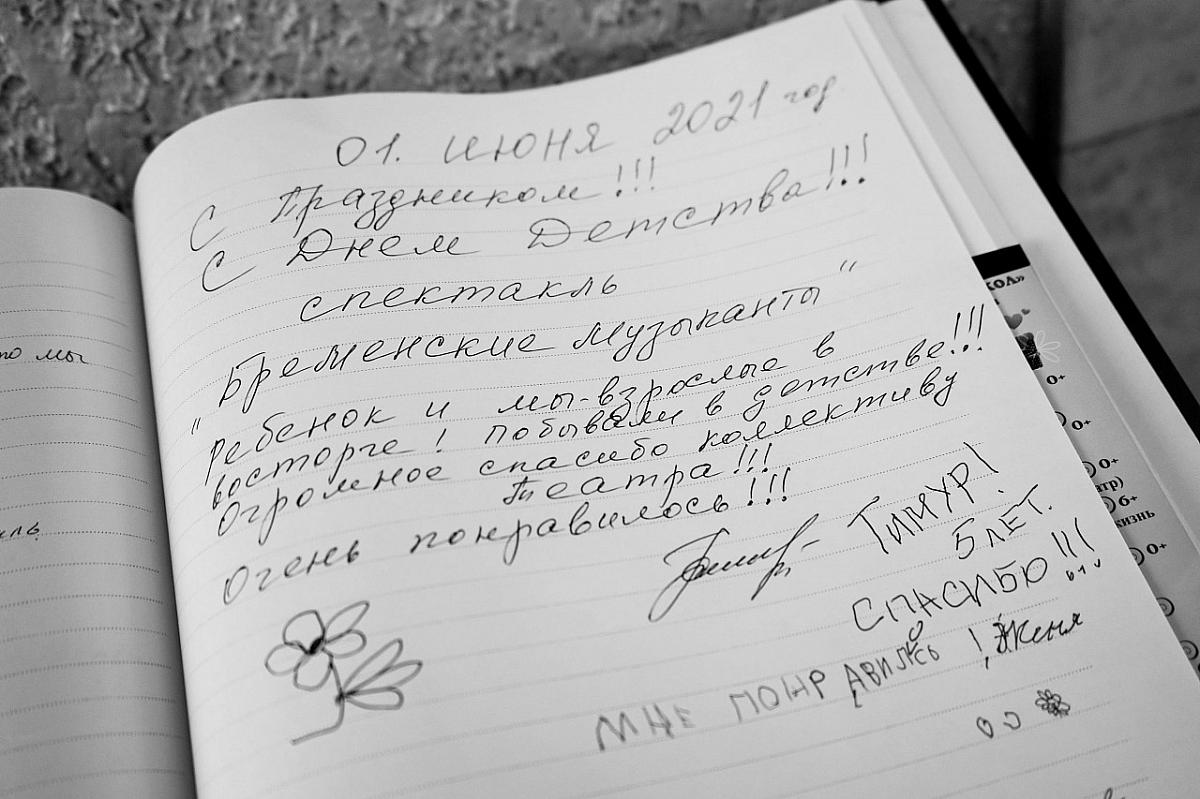 01. июня 2021 год
С Праздником!!!
С Днем Детства!!!
спектакль
"Бременские музыканты"
Ребенок и мы-взрослые в
восторге! Побывали в детстве!!!
Огромное спасибо коллективу
Театра!!!
Очень понравилось!!!
ТИМУР!
5 ЛЕТ.
СПАСИБО!!!
МНЕ ПОНРАВИЛОСЬ! Женя
мы
КОЛ»
0+
0+
0+
атр)
6+
жизнь
0+